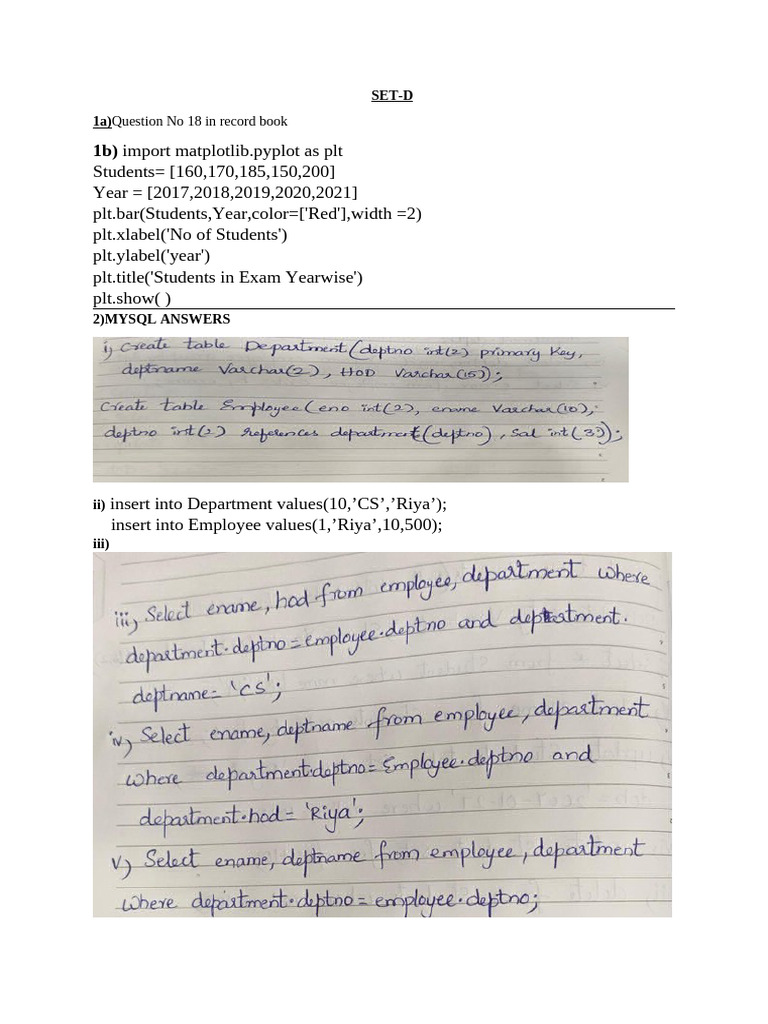 SET-D
1a)Question No 18 in record book
1b) import matplotlib.pyplot as plt
Students= [160,170,185,150,200]
Year = [2017,2018,2019,2020,2021]
plt.bar(Students,Year,color=['Red'],width =2)
plt.xlabel('No of Students')
plt.ylabel('year')
plt.title('Students in Exam Yearwise')
plt.show( )
2)MYSQL ANSWERS
i) Create table Department(deptno int(2) primary key,
deptname Varchar(2), HOD Varchar(15));
Create table Employee(eno int(2), ename Varchar(10),
deptno int(2) references department(deptno), Sal int(3));
ii) insert into Department values(10,’CS’,’Riya’);
insert into Employee values(1,’Riya’,10,500);
iii)
iii) Select ename, hod from employee, department where
department.deptno = employee.deptno and department.
deptname= 'CS';
iv) Select ename, deptname from employee, department
where department.deptno = Employee.deptno and
department.hod = 'Riya';
v) Select ename, deptname from employee, department
where department.deptno = employee.deptno;